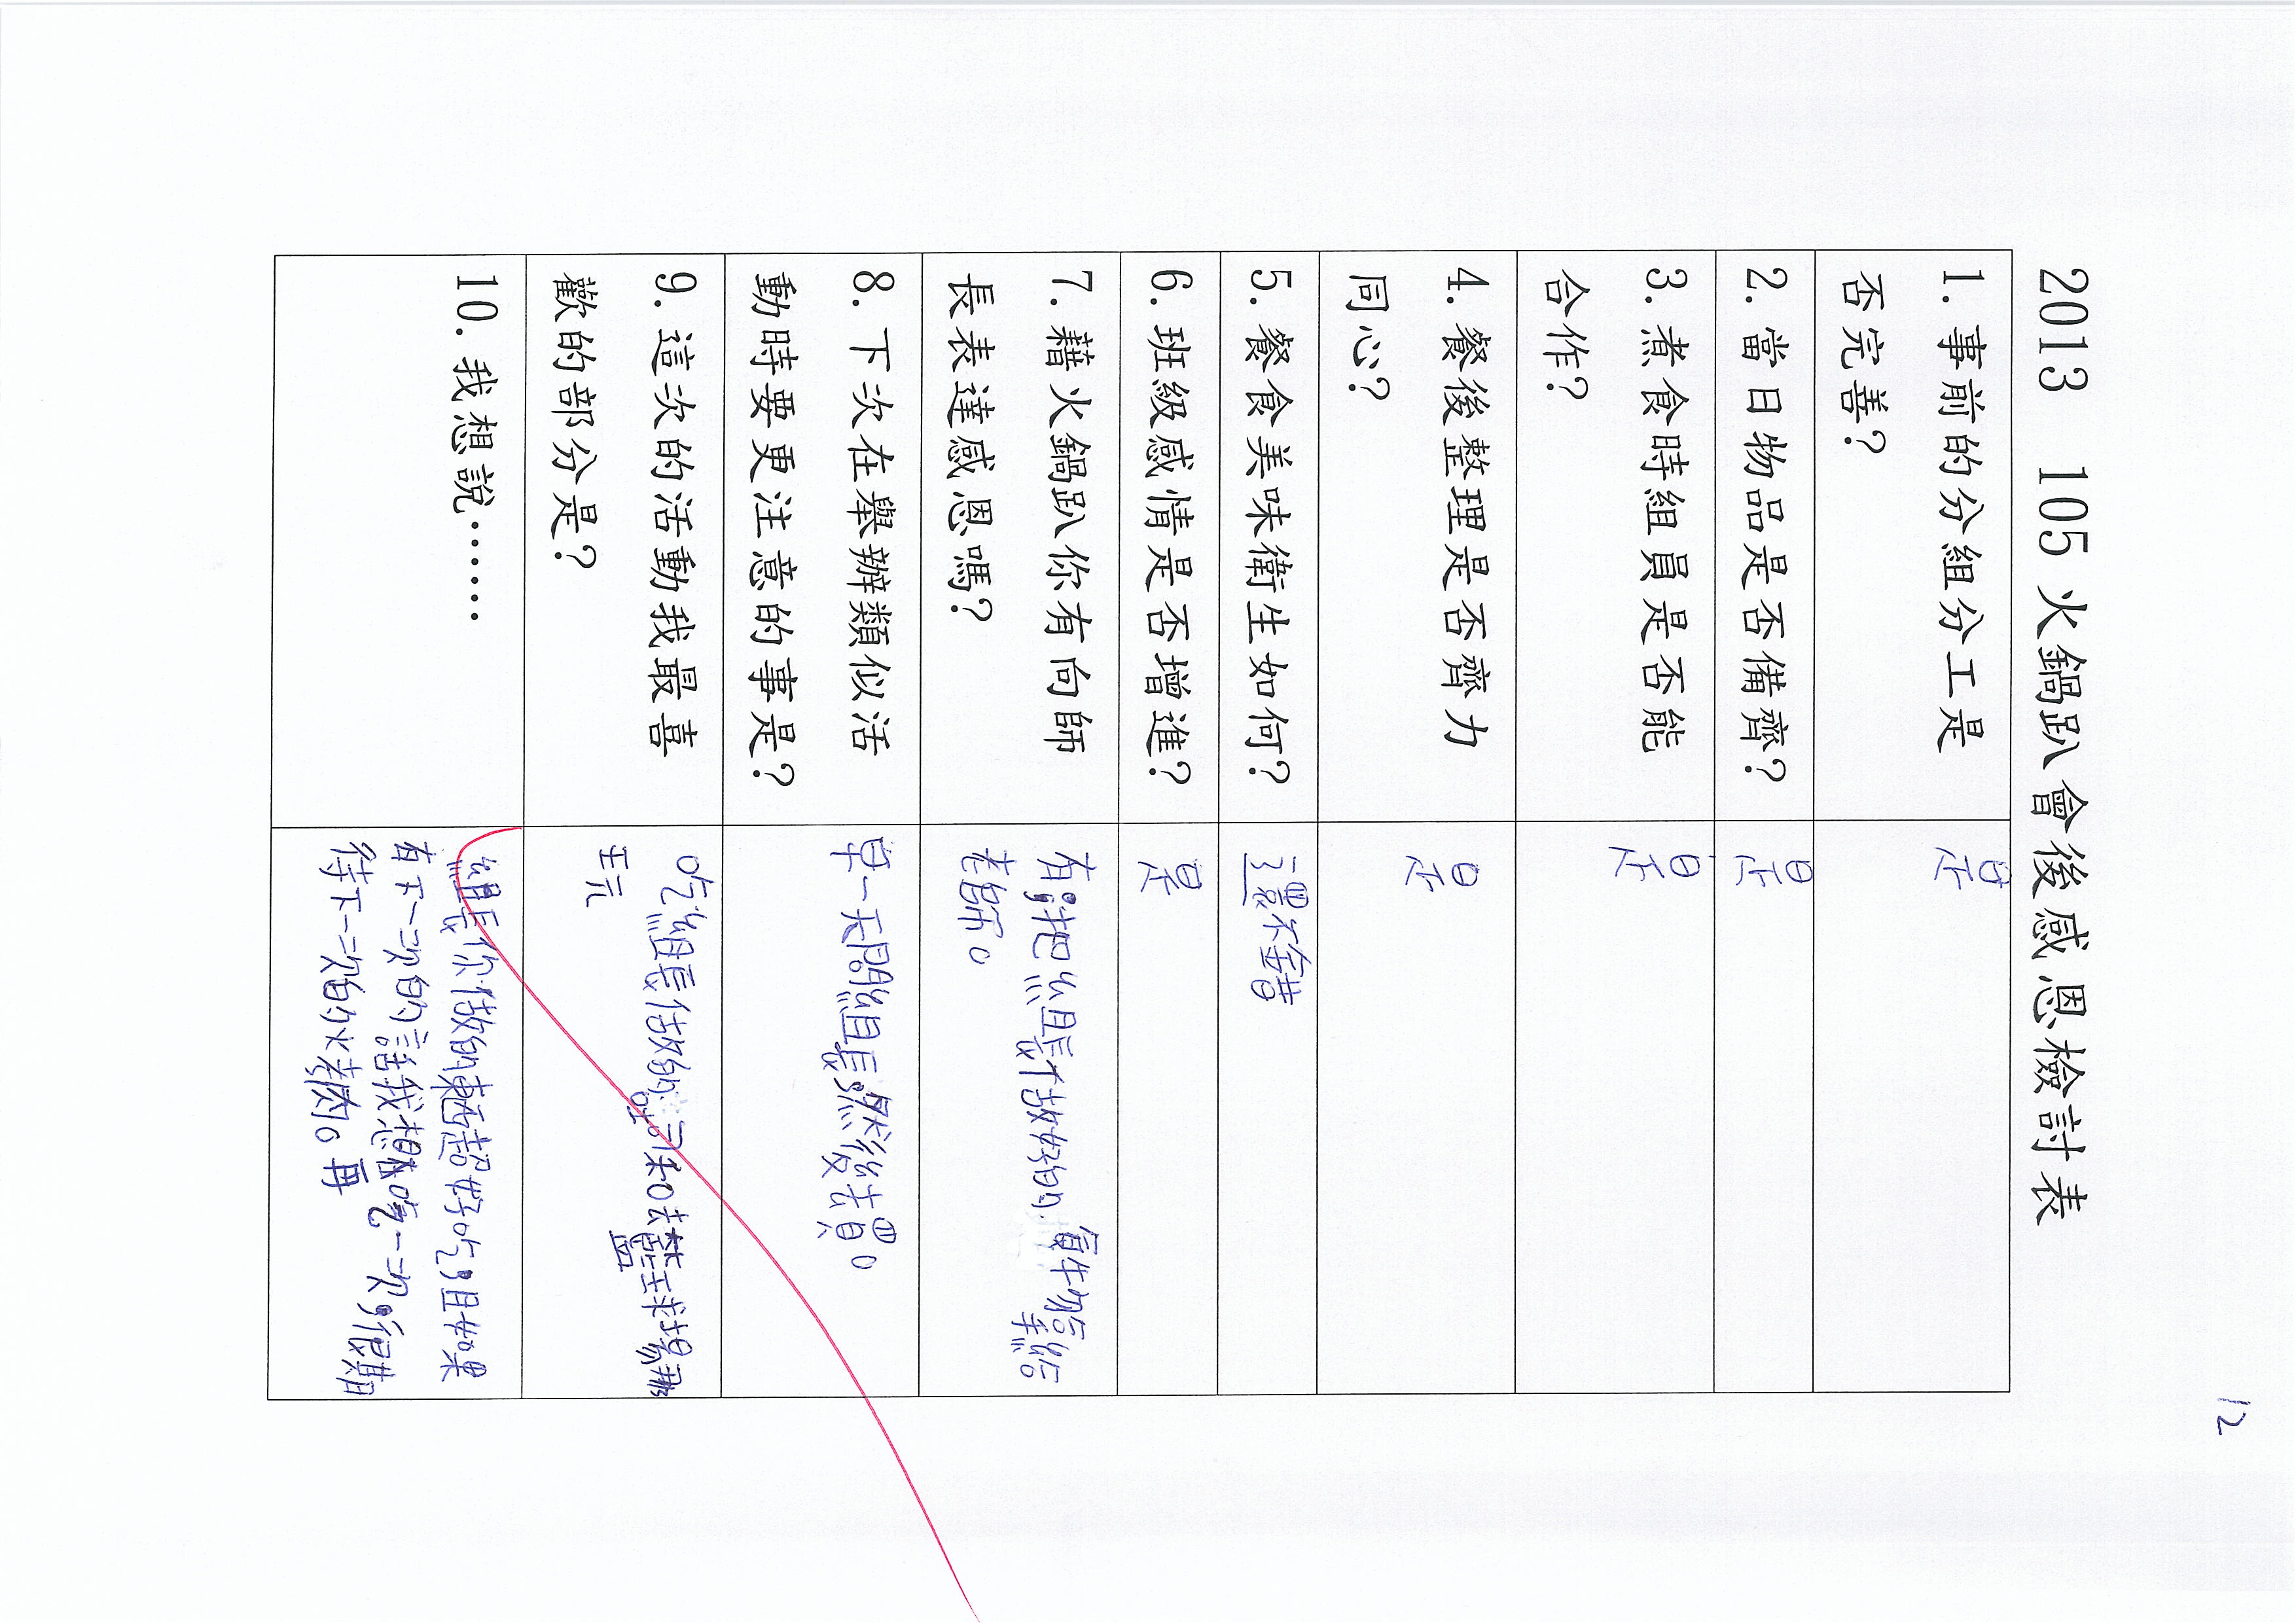 12
2013 105火鍋趴會後感恩檢討表
1. 事前的分組分工是
否完善?
是
2. 當日物品是否備齊?
是
3. 煮食時組員是否能
合作?
是
4. 餐後整理是否齊力
同心?
是
5. 餐食美味衛生如何?
還不錯
6. 班級感情是否增進?
是
7. 藉火鍋趴你有向師
長表達感恩嗎?
有,把組長做好的食物給
老師。
8. 下次在舉辦類似活
動時要更注意的事是?
早一天問組長,然後去買。
9. 這次的活動我最喜
歡的部分是?
吃組長做的 和去籃球場那
玩
10. 我想說……
組長你做的東西超好吃,且如果
有下一次的話我想吃一次,很期
待下一次的火烤肉。再